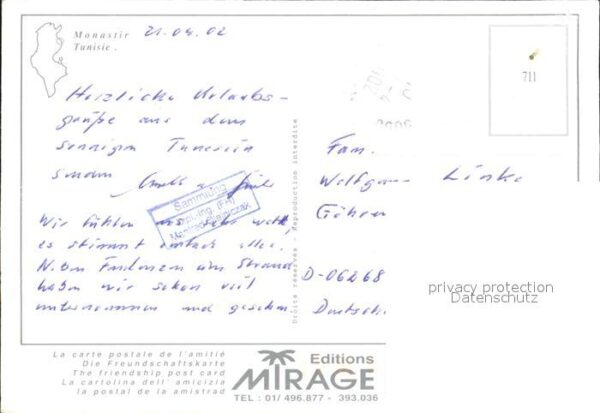 Monastir
Tunisie.
21.04.02
Herzliche Urlaubs-
grüße aus dem
sonnigen Tunesien
senden
Wir fühlen uns sehr wohl,
es stimmt einfach alles.
Neben Faulenzen am Strand
haben wir schon viel
unternommen und gesehen.
711
Fam.
Wolfgang Linke
Göhren
D-06268
Deutschl
Sammlung
Dipl.-Ing. (FH)
Manfred
Droits réservés - Reproduction interdite
privacy protection
Datenschutz
La carte postale de l'amitié
Die Freundschaftskarte
The friendship post card
La cartolina dell' amicizia
la postal de la amistrad
Editions
MIRAGE
TEL : 01/ 496.877 - 393.036